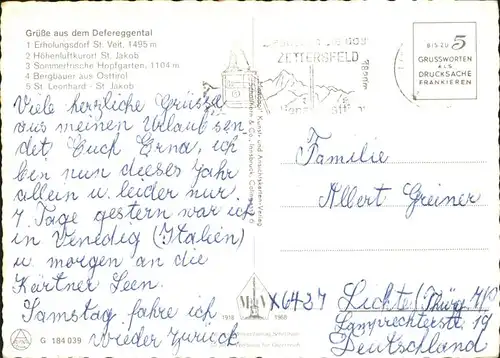 Grüße aus dem Defereggental
1 Erholungsdorf St. Veit, 1495 m
2 Höhenluftkurort St. Jakob
3 Sommerfrische Hopfgarten, 1104 m
4 Bergbauer aus Osttirol
5 St. Leonhard - St. Jakob
ZETTERSFELD
BIS ZU 5
GRUSSWORTEN
ALS
DRUCKSACHE
FRANKIEREN
Viele herzliche Grüsse
aus meinen Urlaub sen
det Euch Erna, ich
bin nun dieses Jahr
allein u leider nur
7 Tage gestern war ich
in Venedig (Italien)
u morgen an die
Kärtner Seen.
Samstag fahre ich
wieder zurück
Familie
Albert Greiner
X6427 Lichte (Thürg.
Lamprechterstr. 19
Deutschland
1918
1968
G 184 039